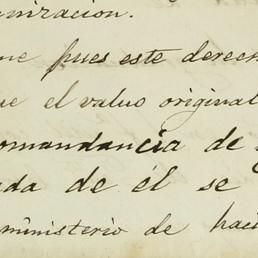 nizacion.
ne pues este derech
ue el valuo original
omandancia de
ada de él se
ministerio de haci